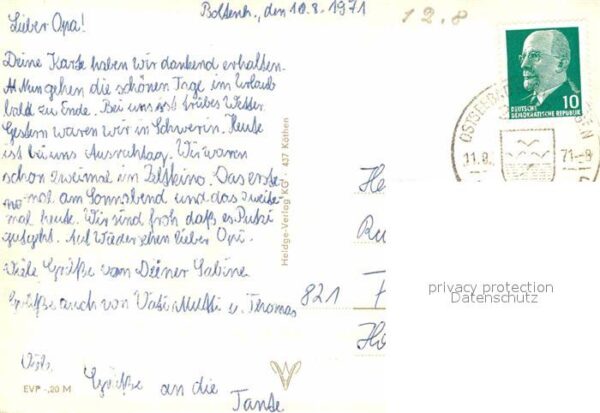 Boltenh., den 10.8.1971
12.8
Lieber Opa!
Deine Karte haben wir dankend erhalten.
Nun gehen die schönen Tage im Urlaub
bald zu Ende. Bei uns ist trübes Wetter.
Gestern waren wir in Schwerin. Heute
ist bei uns Waschtag. Wir waren
schon zweimal im Zeltkino. Das erste
mal am Sonnabend und das zweite
mal heute. Wir sind froh daß es Putzi
gut geht. Auf Wiedersehen lieber Opi.
Viele Grüße von Deiner Sabine
Grüße auch von Vati Mutti u. Thomas
Viele Grüße an die
Tante
EVP -,20 M
Heldge-Verlag KG · 437 Köthen
DEUTSCHE
DEMOKRATISCHE REPUBLIK
10
OSTSEEBAD
11.8.
71-9
He
Ru
821
Ho
privacy protection
Datenschutz